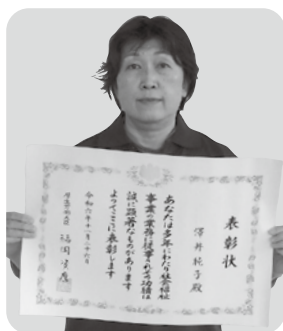 表彰状
澤井純子殿
あなたは多年にわたり社会福祉
事業の業務に従事されその功績は
誠に顕著なものがあります
よってここに表彰します
令和六年十一月二十六日
厚生労働大臣 福岡資麿